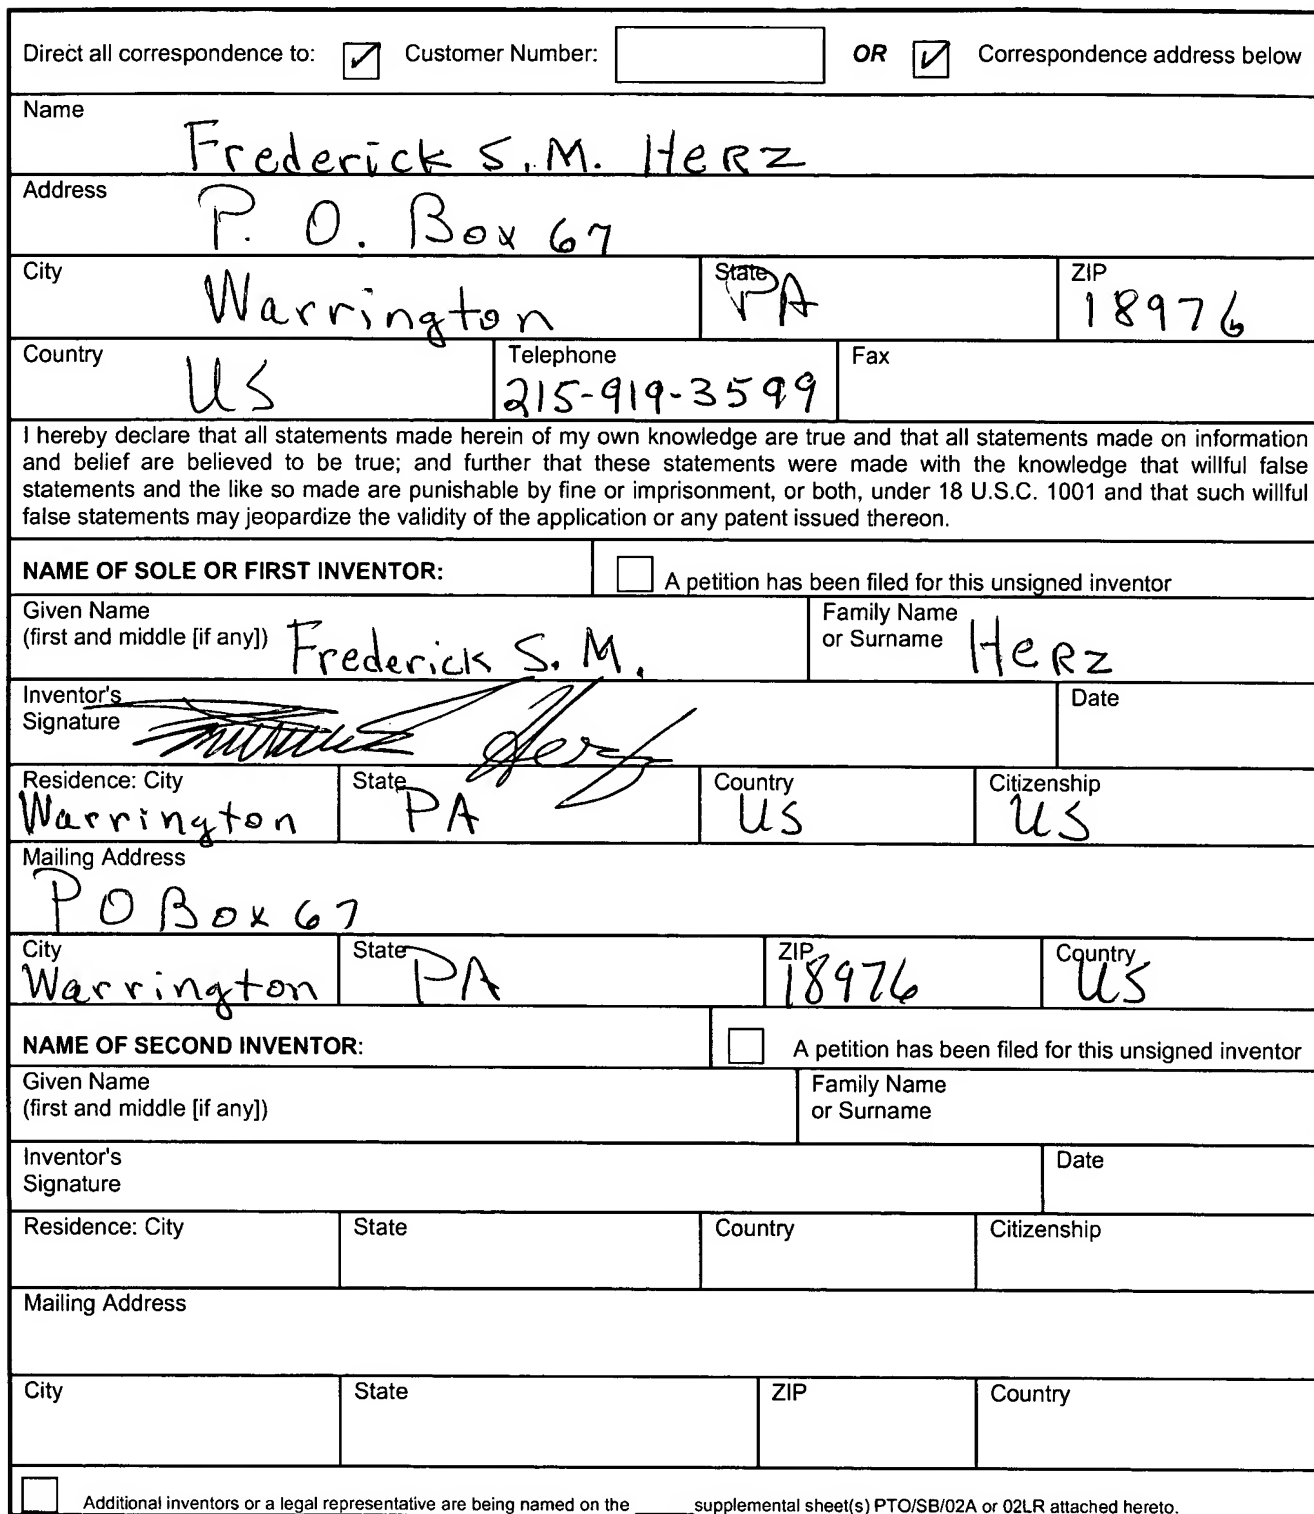 Direct all correspondence to: ✓ Customer Number: OR ✓ Correspondence address below
Name
Frederick S.M. Herz
Address
P. O. Box 67
City State ZIP
Warrington PA 18976
Country Telephone Fax
US 215-919-3599
I hereby declare that all statements made herein of my own knowledge are true and that all statements made on information
and belief are believed to be true; and further that these statements were made with the knowledge that willful false
statements and the like so made are punishable by fine or imprisonment, or both, under 18 U.S.C. 1001 and that such willful
false statements may jeopardize the validity of the application or any patent issued thereon.
NAME OF SOLE OR FIRST INVENTOR: A petition has been filed for this unsigned inventor
Given Name Family Name
(first and middle [if any]) Frederick S. M. or Surname Herz
Inventor's Date
Signature Herz
Residence: City State Country Citizenship
Warrington PA US US
Mailing Address
P O Box 67
City State ZIP Country
Warrington PA 18976 US
NAME OF SECOND INVENTOR: A petition has been filed for this unsigned inventor
Given Name Family Name
(first and middle [if any]) or Surname
Inventor's Date
Signature
Residence: City State Country Citizenship
Mailing Address
City State ZIP Country
Additional inventors or a legal representative are being named on the _____ supplemental sheet(s) PTO/SB/02A or 02LR attached hereto.